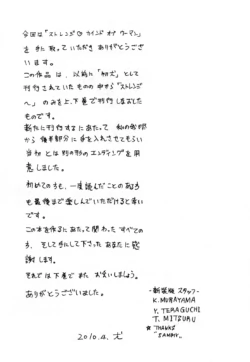 今回は「ストレンジ カインド オブ ウーマン」
を手に取っていただきありがとうござ
います。
この作品は、以前に「初犬」として
刊行されていたものの中から「ストレンジ
へ」のみを上、下巻で刊行しました
ものです。
新たに刊行するにあたって 私の
から後半部分に手を入れさせてもらい
当初とは別の形のエンディングを用
意しました。
初めての方も、一度読んだことの有る方
も最後まで楽しんでいただけると幸い
です。
この本を作るにあたって関わった すべての
方、そして手にして下さった あなたに感
謝します。
それでは下巻で また お会いしましょう。
ありがとうございました。
2010.4. 犬
-新装版 スタッフ-
K. MURAYAMA
Y. TERAGUCHI
T. MITSUKU
★ THANKS